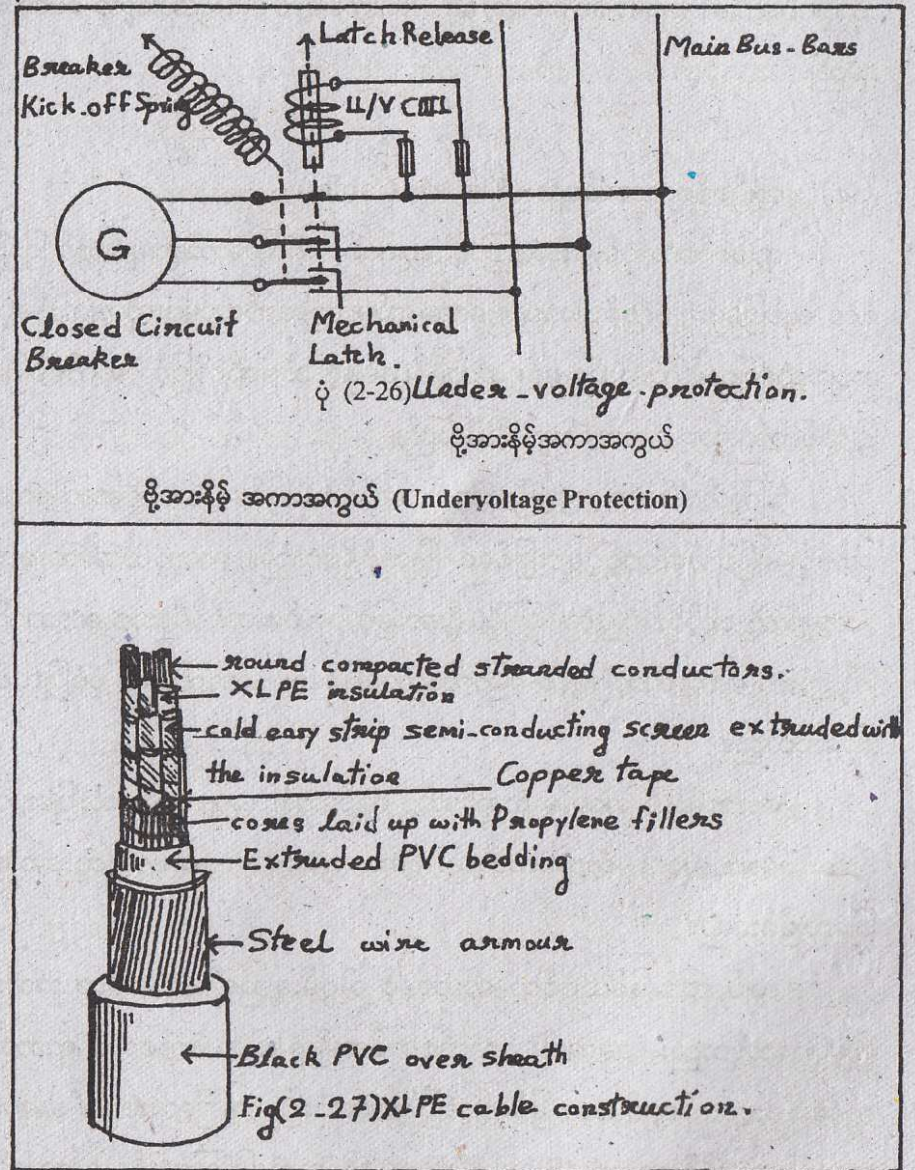 Latch Release
Main Bus-Bars
Breaker
Kick-off Spring
U/V COIL
G
Closed Circuit
Breaker
Mechanical
Latch.
ပုံ (2-26) Under-voltage-protection.
ဗို့အားနိမ့်အကာအကွယ်
ဗို့အားနိမ့် အကာအကွယ် (Undervoltage Protection)
round compacted stranded conductors.
XLPE insulation
cold easy strip semi-conducting screen extruded with
the insulation
Copper tape
cores laid up with Propylene fillers
Extruded PVC bedding
Steel wire armour
Black PVC over sheath
Fig(2-27)XLPE cable construction.